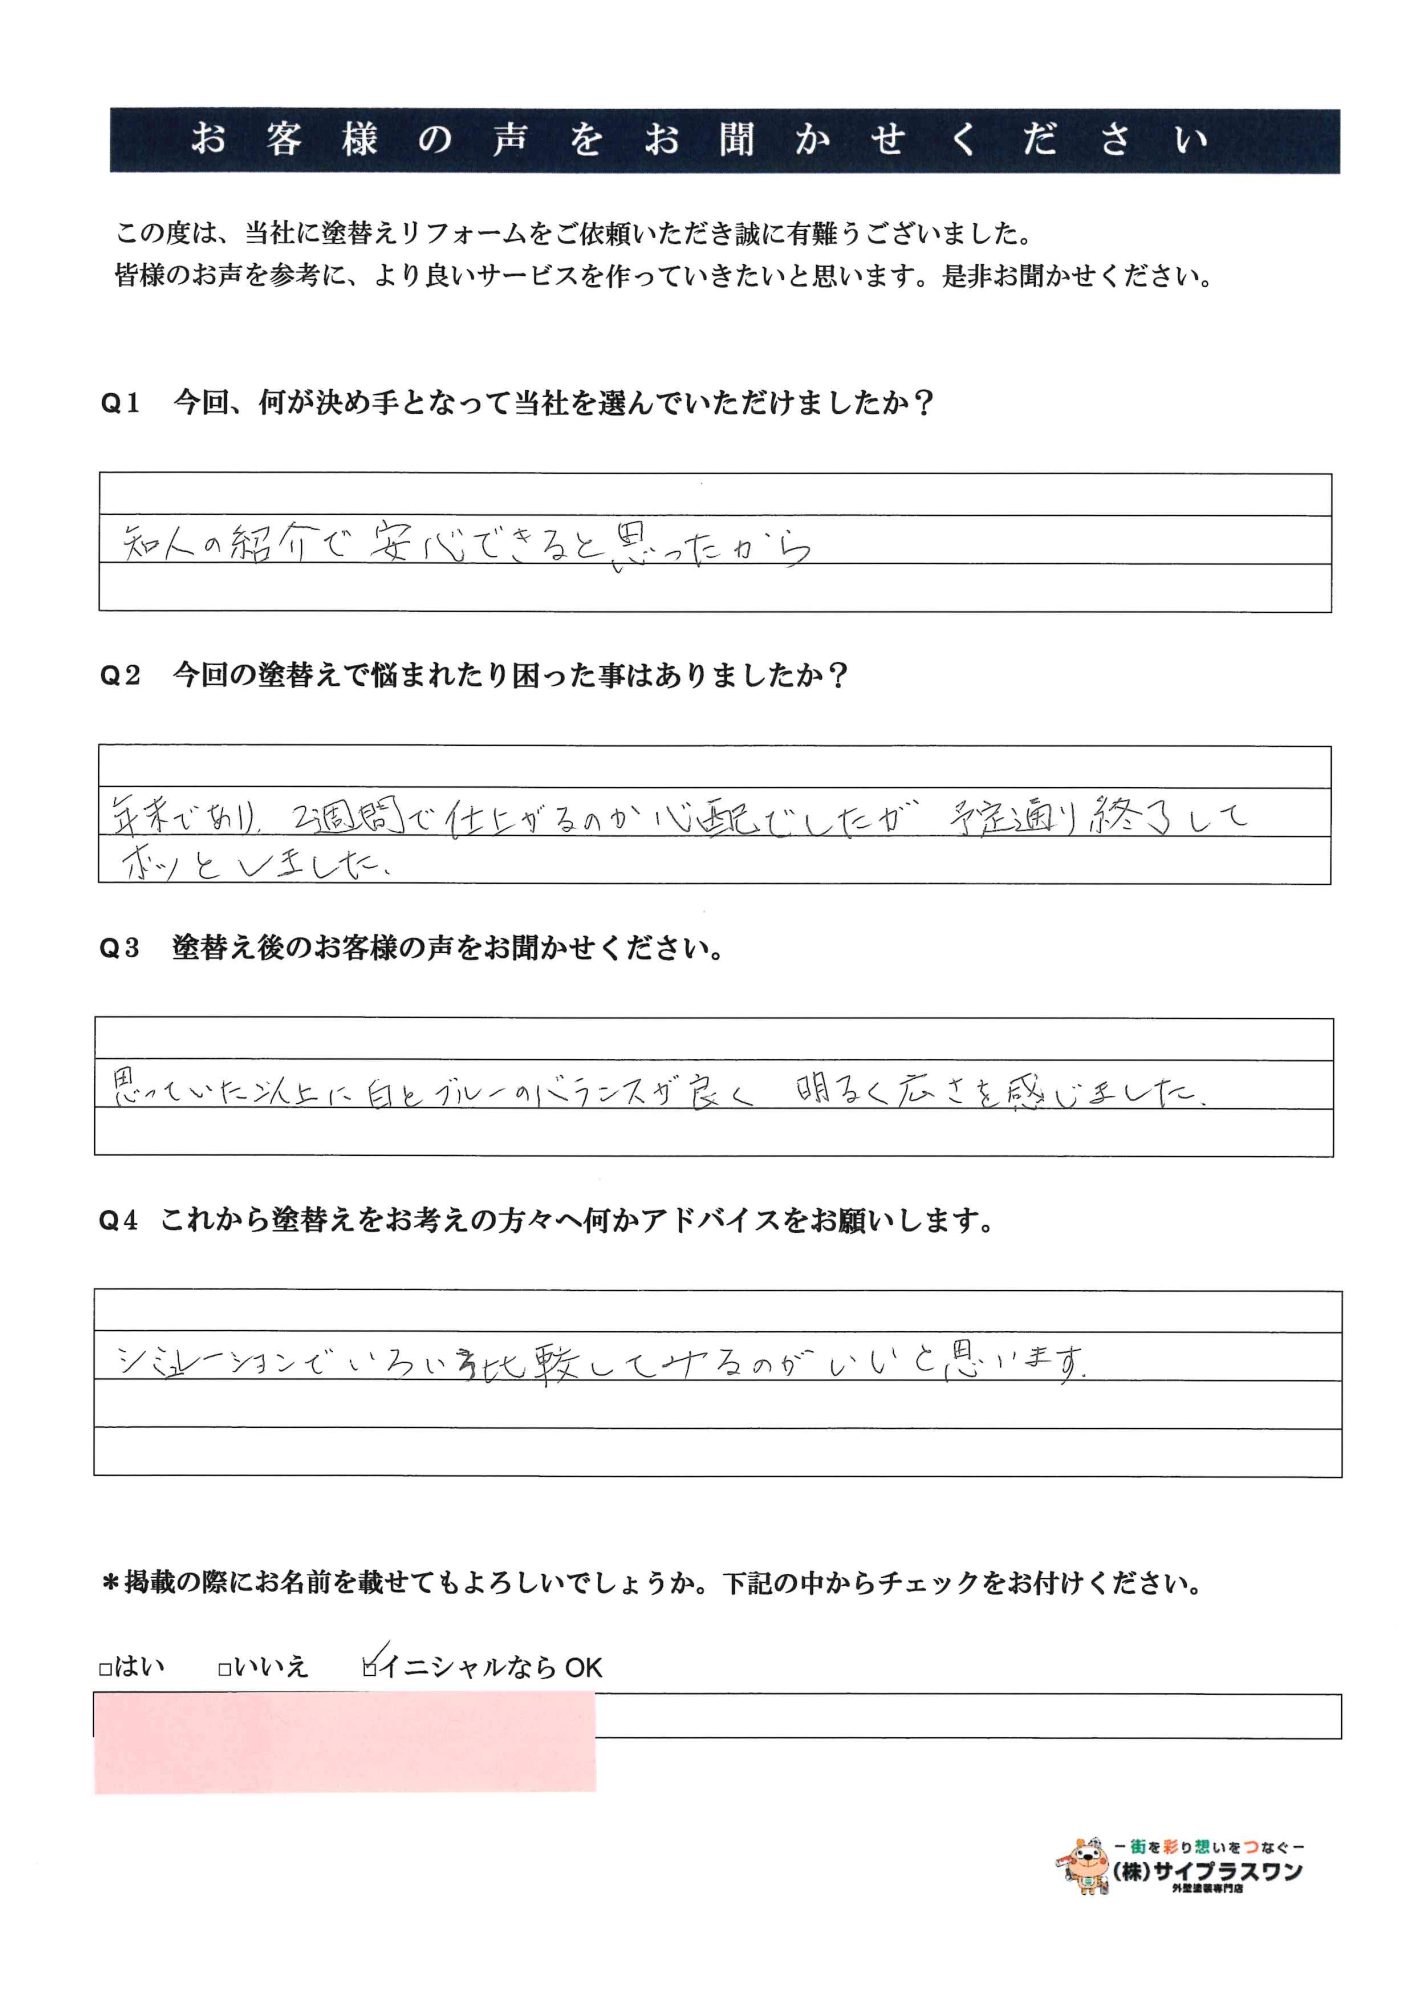 お客様の声をお聞かせください
この度は、当社に塗替えリフォームをご依頼いただき誠に有難うございました。
皆様のお声を参考に、より良いサービスを作っていきたいと思います。是非お聞かせください。
Q1 今回、何が決め手となって当社を選んでいただけましたか？
知人の紹介で安心できると思ったから
Q2 今回の塗替えで悩まれたり困った事はありましたか？
年末であり、2週間で仕上がるのか心配でしたが 予定通り終了して
ホッとしました。
Q3 塗替え後のお客様の声をお聞かせください。
思っていた以上に白とブルーのバランスが良く 明るく広さを感じました。
Q4 これから塗替えをお考えの方々へ何かアドバイスをお願いします。
シミュレーションでいろいろ比較してみるのがいいと思います。
＊掲載の際にお名前を載せてもよろしいでしょうか。下記の中からチェックをお付けください。
□はい □いいえ ☑イニシャルならOK
－街を彩り想いをつなぐ－
（株）サイプラスワン
外壁塗装専門店